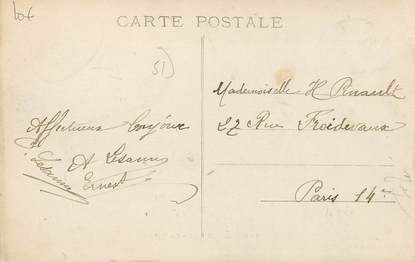 Lot
CARTE POSTALE
51)
Affectueux bonjour
A Lesann
Ernest
Mademoiselle H Renault
27 Rue Froidevaux
Paris 14e